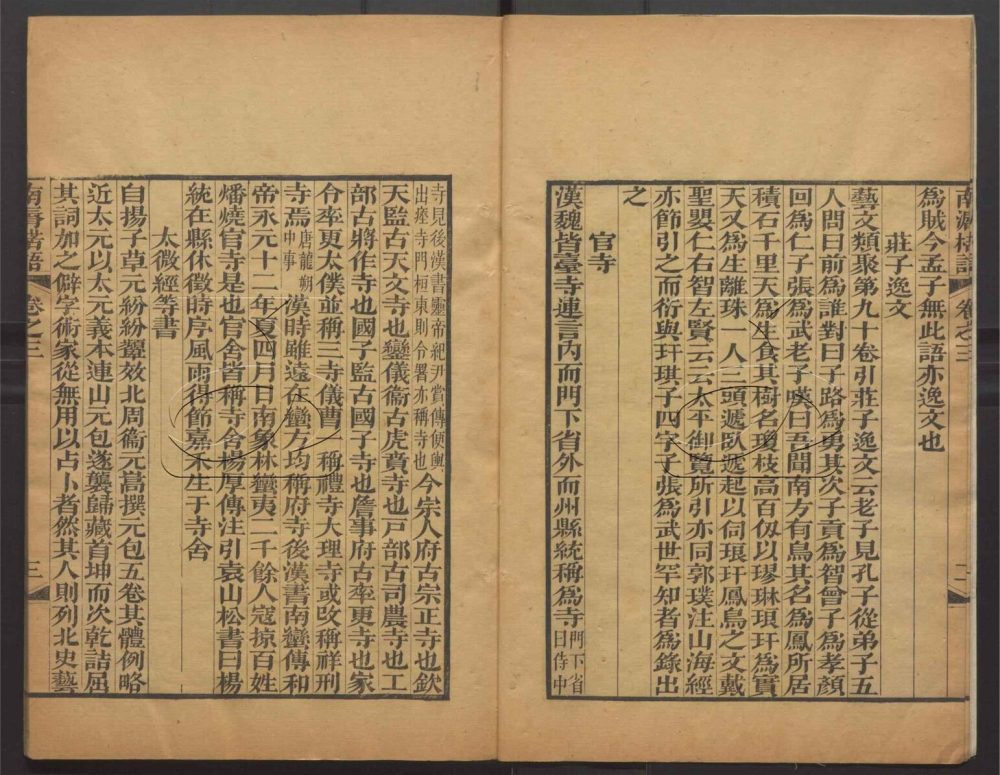 南漘楛語 卷之三 二
爲賊今孟子無此語亦逸文也
莊子逸文
藝文類聚第九十卷引莊子逸文云老子見孔子從弟子五
人問曰前爲誰對曰子路爲勇其次子貢爲智曾子爲孝顏
回爲仁子張爲武老子嘆曰吾聞南方有鳥其名爲鳳所居
積石千里天爲生食其樹名瓊枝高百仭以璆琳琅玕爲實
天又爲生離珠一人三頭遞臥遞起以伺琅玕鳳鳥之文戴
聖嬰仁右智左賢云云太平御覽所引亦同郭璞注山海經
亦節引之而衍與玕琪子四字子張爲武世罕知者爲錄出
之
官寺
漢魏皆臺寺連言內而門下省外而州縣統稱爲寺門下省曰侍中
寺見後漢書靈帝紀尹賞傳便輿出瘗寺門桓東則令署亦稱寺也今宗人府古宗正寺也欽
天監古天文寺也鑾儀衞古虎賁寺也戸部古司農寺也工
部古將作寺也國子監古國子寺也詹事府古率更寺也家
令率更太僕並稱三寺儀曹一稱禮寺大理寺或攺稱祥刑
寺焉唐龍朔中事漢時雖遠在蠻方均稱府寺後漢書南蠻傳和
帝永元十二年夏四月日南象林蠻夷二千餘人寇掠百姓
燔燒官寺是也官舍皆稱寺舍楊厚傳注引袁山松書曰楊
統在縣休徵時序風雨得節嘉禾生于寺舍
太微經等書
自揚子草元紛紛顰效北周衞元嵩撰元包五卷其體例略
近太元以太元義本連山元包遂襲歸藏首坤而次乾詰屈
其詞加之僻字術家從無用以占卜者然其人則列北史藝
南漘楛語 卷之三 三